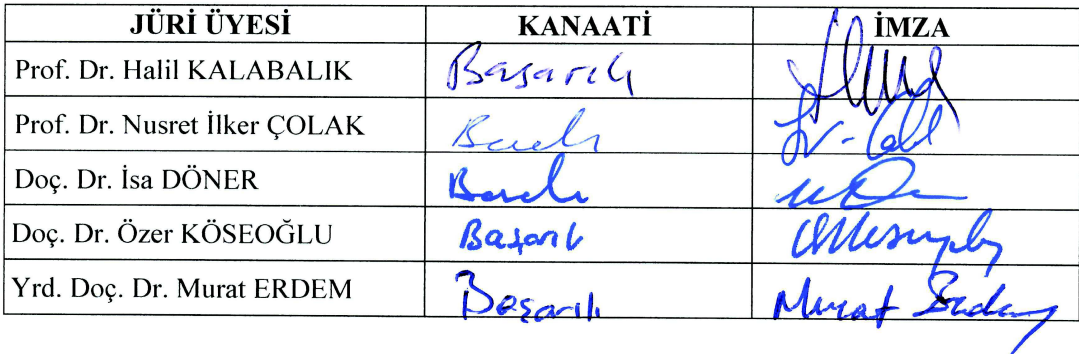 JÜRİ ÜYESİ KANAATİ İMZA
Prof. Dr. Halil KALABALIK Başarılı
Prof. Dr. Nusret İlker ÇOLAK
Doç. Dr. İsa DÖNER
Doç. Dr. Özer KÖSEOĞLU Başarılı
Yrd. Doç. Dr. Murat ERDEM Başarılı Murat